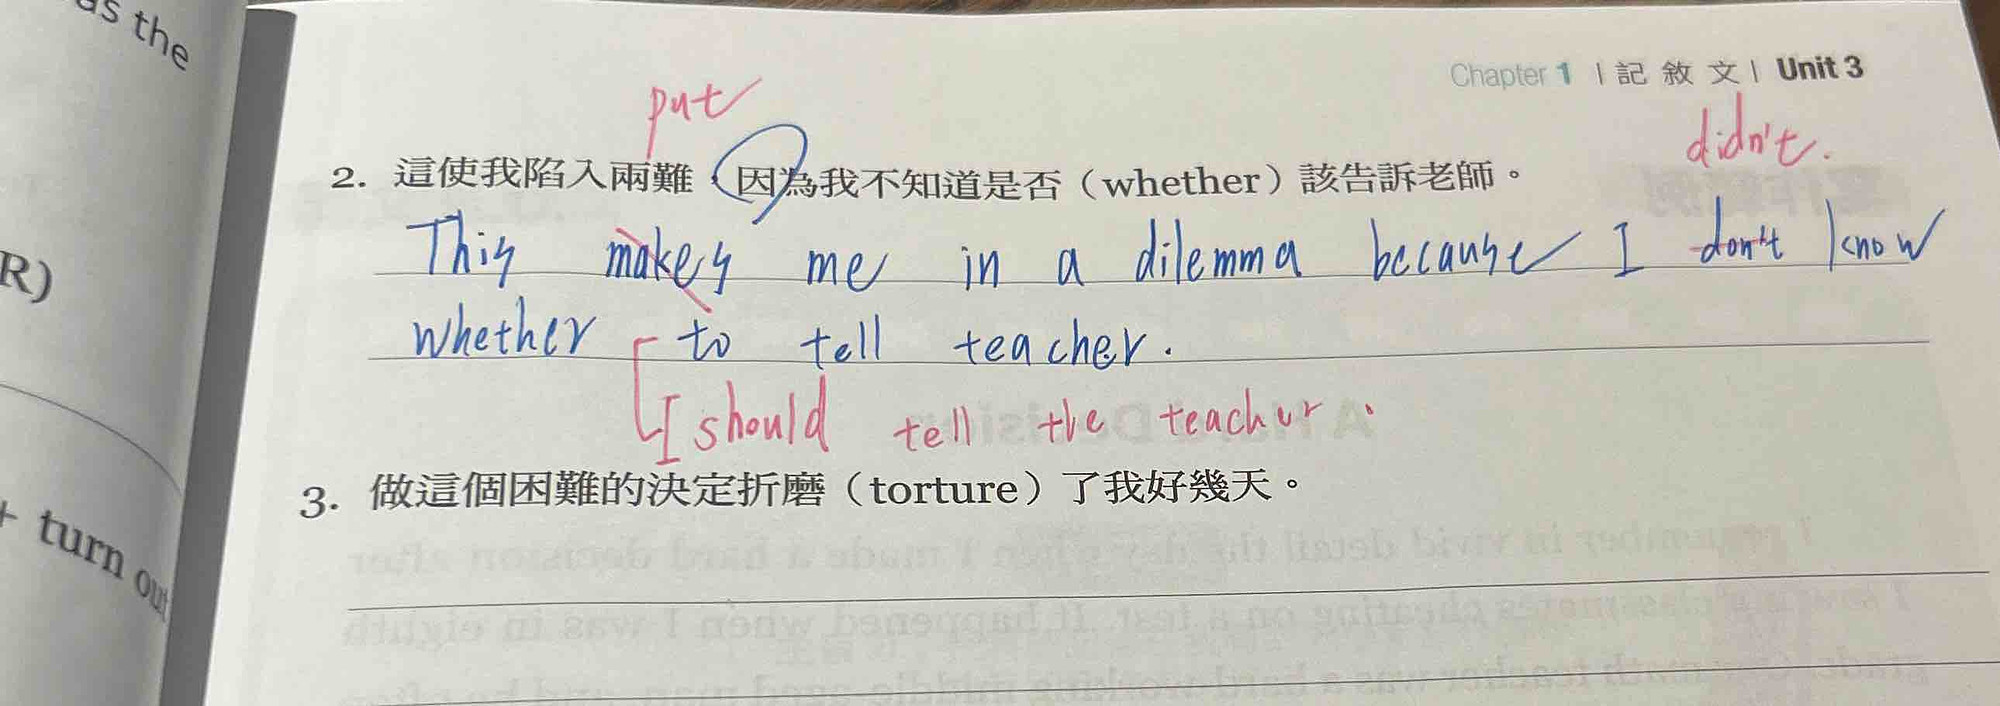 as the
R)
+ turn ou
Chapter 1 | 記 敘 文 | Unit 3
put
didn't.
2. 這使我陷入兩難，因為我不知道是否（whether）該告訴老師。
This makes me in a dilemma because I don't know
whether to tell teacher.
I should tell the teacher.
3. 做這個困難的決定折磨（torture）了我好幾天。